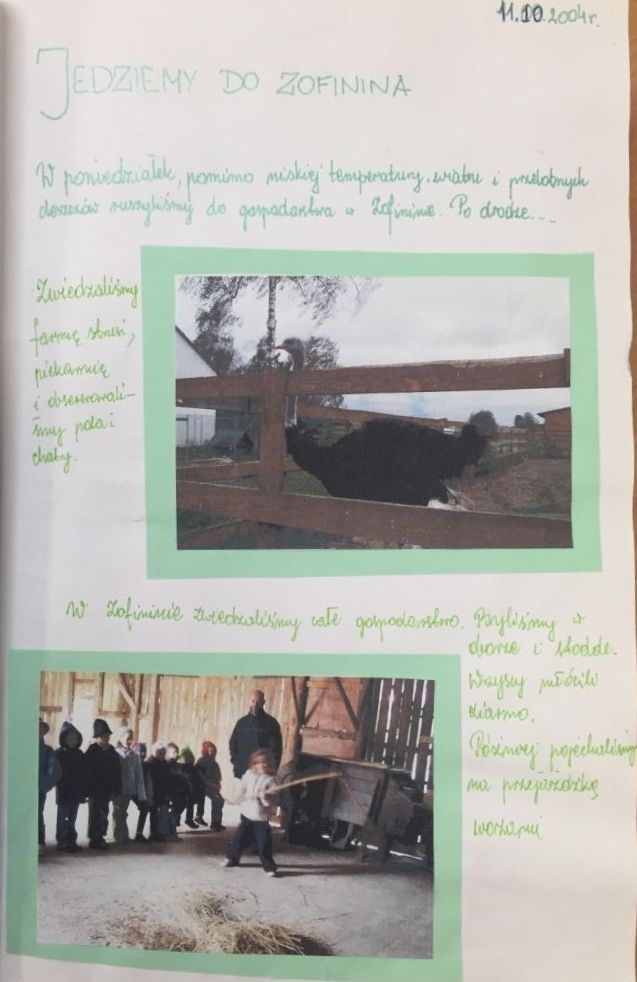 11.10.2004r.
JEDZIEMY DO ZOFININA
W poniedziałek, pomimo niskiej temperatury, wiatru i przelotnych
deszczów ruszyliśmy do gospodarstwa w Zofininie. Po drodze...
Zwiedzaliśmy
farmę strusi,
piekarnię
i obserwowali-
śmy pola i
chaty.
W Zofininie zwiedzaliśmy całe gospodarstwo. Byliśmy w
oborze i stodole.
Wszyscy młócili
ziarno.
Później pojechaliśmy
na przejażdżkę
wozami